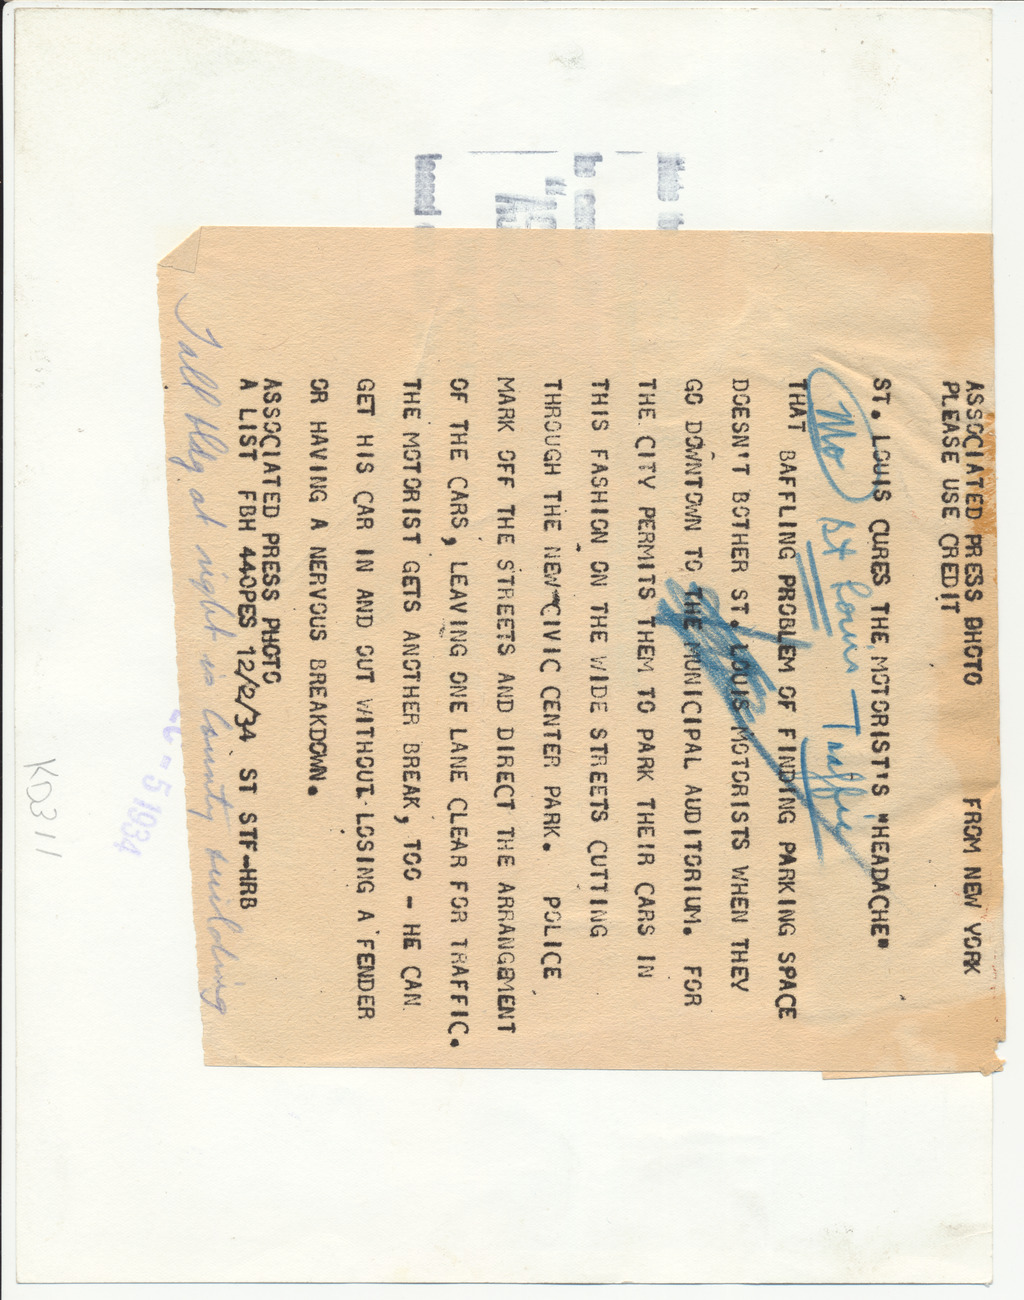 ASSOCIATED PRESS PHOTO FROM NEW YORK
PLEASE USE CREDIT
ST. LOUIS CURES THE MOTORIST'S "HEADACHE"
Mo St Louis - Traffic
THAT BAFFLING PROBLEM OF FINDING PARKING SPACE
DOESN'T BOTHER ST. LOUIS MOTORISTS WHEN THEY
GO DOWNTOWN TO THE MUNICIPAL AUDITORIUM. FOR
THE CITY PERMITS THEM TO PARK THEIR CARS IN
THIS FASHION ON THE WIDE STREETS CUTTING
THROUGH THE NEW CIVIC CENTER PARK. POLICE
MARK OFF THE STREETS AND DIRECT THE ARRANGEMENT
OF THE CARS, LEAVING ONE LANE CLEAR FOR TRAFFIC.
THE MOTORIST GETS ANOTHER BREAK, TOO - HE CAN
GET HIS CAR IN AND OUT WITHOUT LOSING A FENDER
OR HAVING A NERVOUS BREAKDOWN.
ASSOCIATED PRESS PHOTO
A LIST FBH 440PES 12/2/34 ST STF-HRB
Tall bldg at right is County building
5 1934
KD311